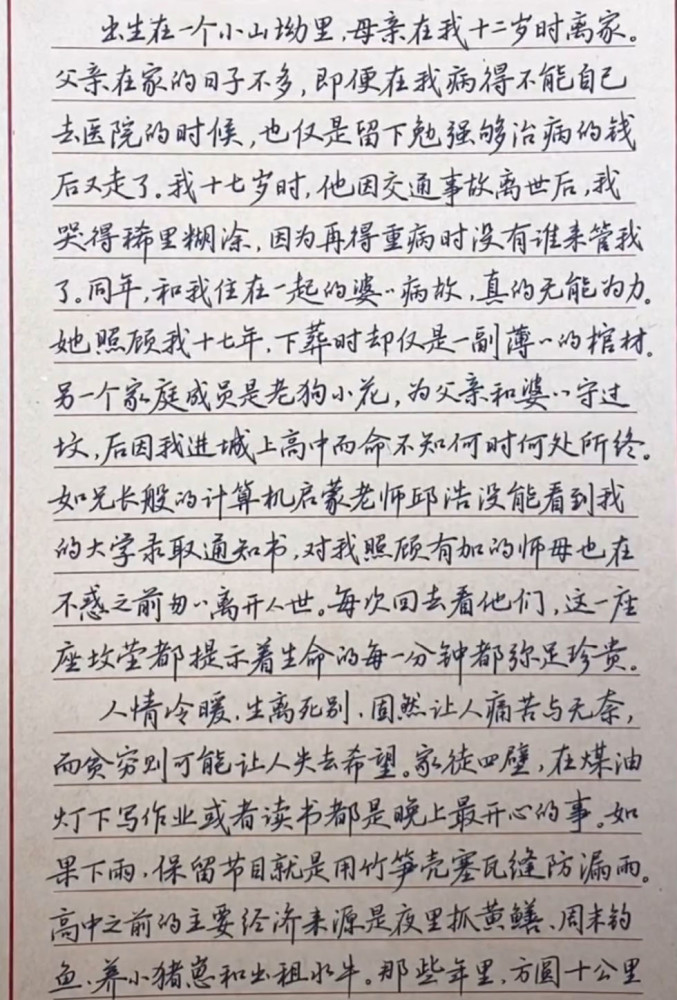 出生在一个小山坳里，母亲在我十二岁时离家。
父亲在家的日子不多，即便在我病得不能自己
去医院的时候，也仅是留下勉强够治病的钱
后又走了。我十七岁时，他因交通事故离世后，我
哭得稀里糊涂，因为再得重病时没有谁来管我
了。同年，和我住在一起的婆〻病故，真的无能为力。
她照顾我十七年，下葬时却仅是一副薄〻的棺材。
另一个家庭成员是老狗小花，为父亲和婆〻守过
坟，后因我进城上高中而命不知何时何处所终。
如兄长般的计算机启蒙老师邱浩没能看到我
的大学录取通知书，对我照顾有加的师母也在
不惑之前匆〻离开人世。每次回去看他们，这一座
座坟茔都提示着生命的每一分钟都弥足珍贵。
人情冷暖，生离死别，固然让人痛苦与无奈，
而贫穷则可能让人失去希望。家徒四壁，在煤油
灯下写作业或者读书都是晚上最开心的事。如
果下雨，保留节目就是用竹笋壳塞瓦缝防漏雨。
高中之前的主要经济来源是夜里抓黄鳝、周末钓
鱼、养小猪崽和出租水牛。那些年里，方圆十公里